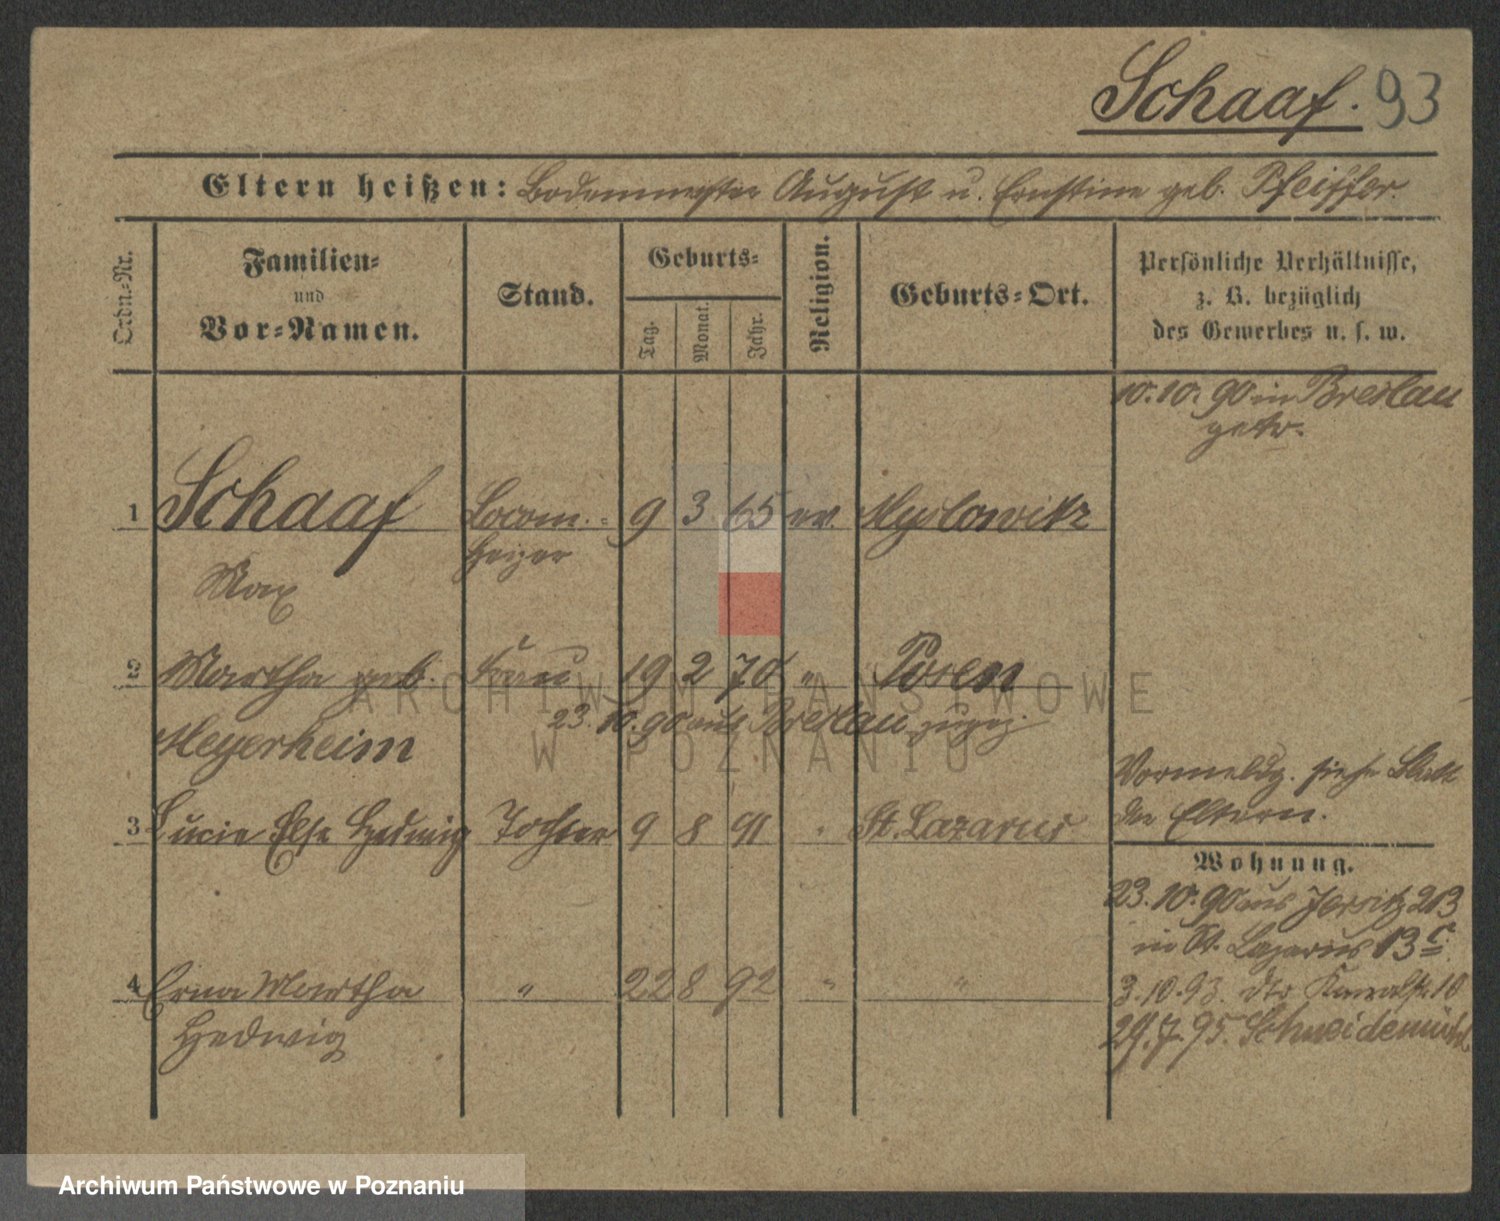 Schaaf. 93
Eltern heißen: Bodenmeister August u. Ernstine geb. Pfeiffer.
Ordn.-Nr.
Familien-
und
Vor-Namen.
Stand.
Geburts-
Tag.
Monat.
Jahr.
Religion.
Geburts-Ort.
Persönliche Verhältnisse,
z. B. bezüglich
des Gewerbes u. s. w.
10.10.90 in Breslau
getr.
1 Schaaf Locom.- 9 3 65 ev. Myslowitz
Heizer
Max
2 Martha geb. Frau 19 2 70 " Posen
23.10.90 aus Breslau zugez.
Meyerheim
Vormeldg. siehe Blatt
der Eltern.
3 Lucie Else Hedwig Tochter 9 8 91 " St. Lazarus
Wohnung.
23.10.90 aus Jersitz 213
in St. Lazarus 13c
4 Erna Martha " 22 8 92 " "
3.10.93. dto 10
Hedwig
29.7.95. Schneidemühl
ARCHIWUM PAŃSTWOWE
W POZNANIU
Archiwum Państwowe w Poznaniu